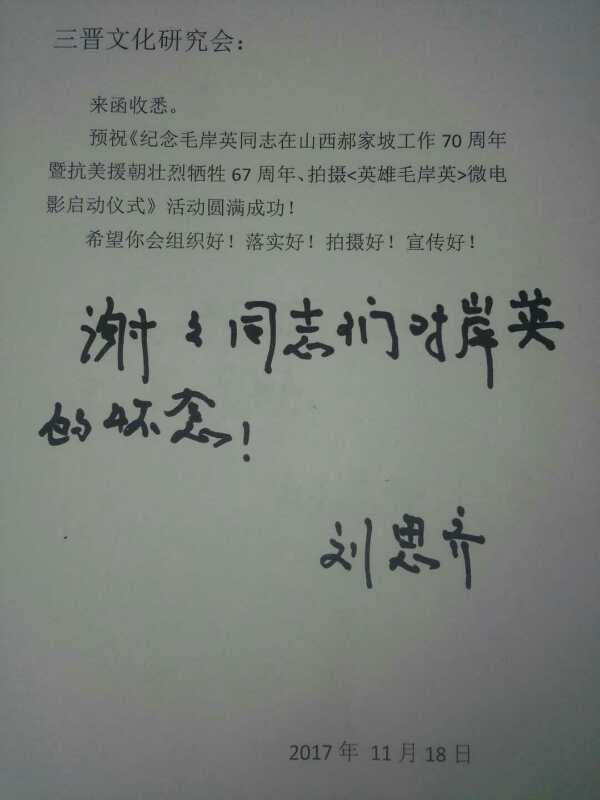 三晋文化研究会：
来函收悉。
预祝《纪念毛岸英同志在山西郝家坡工作 70 周年
暨抗美援朝壮烈牺牲 67 周年、拍摄<英雄毛岸英>微电
影启动仪式》活动圆满成功！
希望你会组织好！落实好！拍摄好！宣传好！
谢々同志们对岸英
的怀念！
刘思齐
2017 年 11 月 18 日